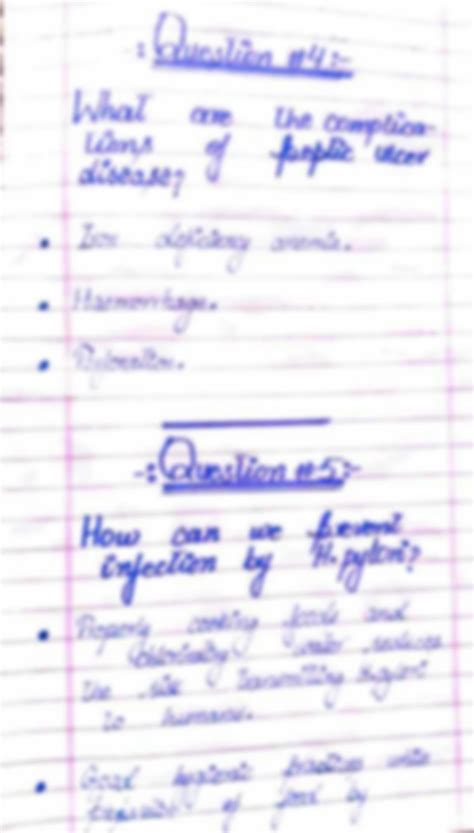 :Question #4:-
What are the complica-
tions of peptic ulcer
disease?
• Iron deficiency anemia.
• Haemorrhage.
-:Question #5:-
How can we prevent
infection by H.pylori?
• Properly cooking foods and
water reduces
the risk transmitting H.pylori
to humans.
• Good hygienic practices with
of food by